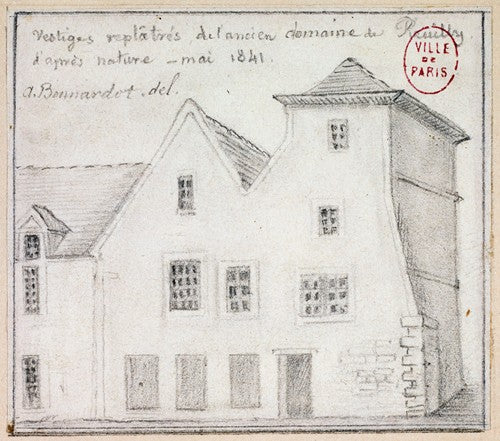 Vestiges replâtrés de l'ancien domaine de Reuilly
d'après nature - mai 1841.
A. Bonnardot. del.
VILLE
DE
PARIS